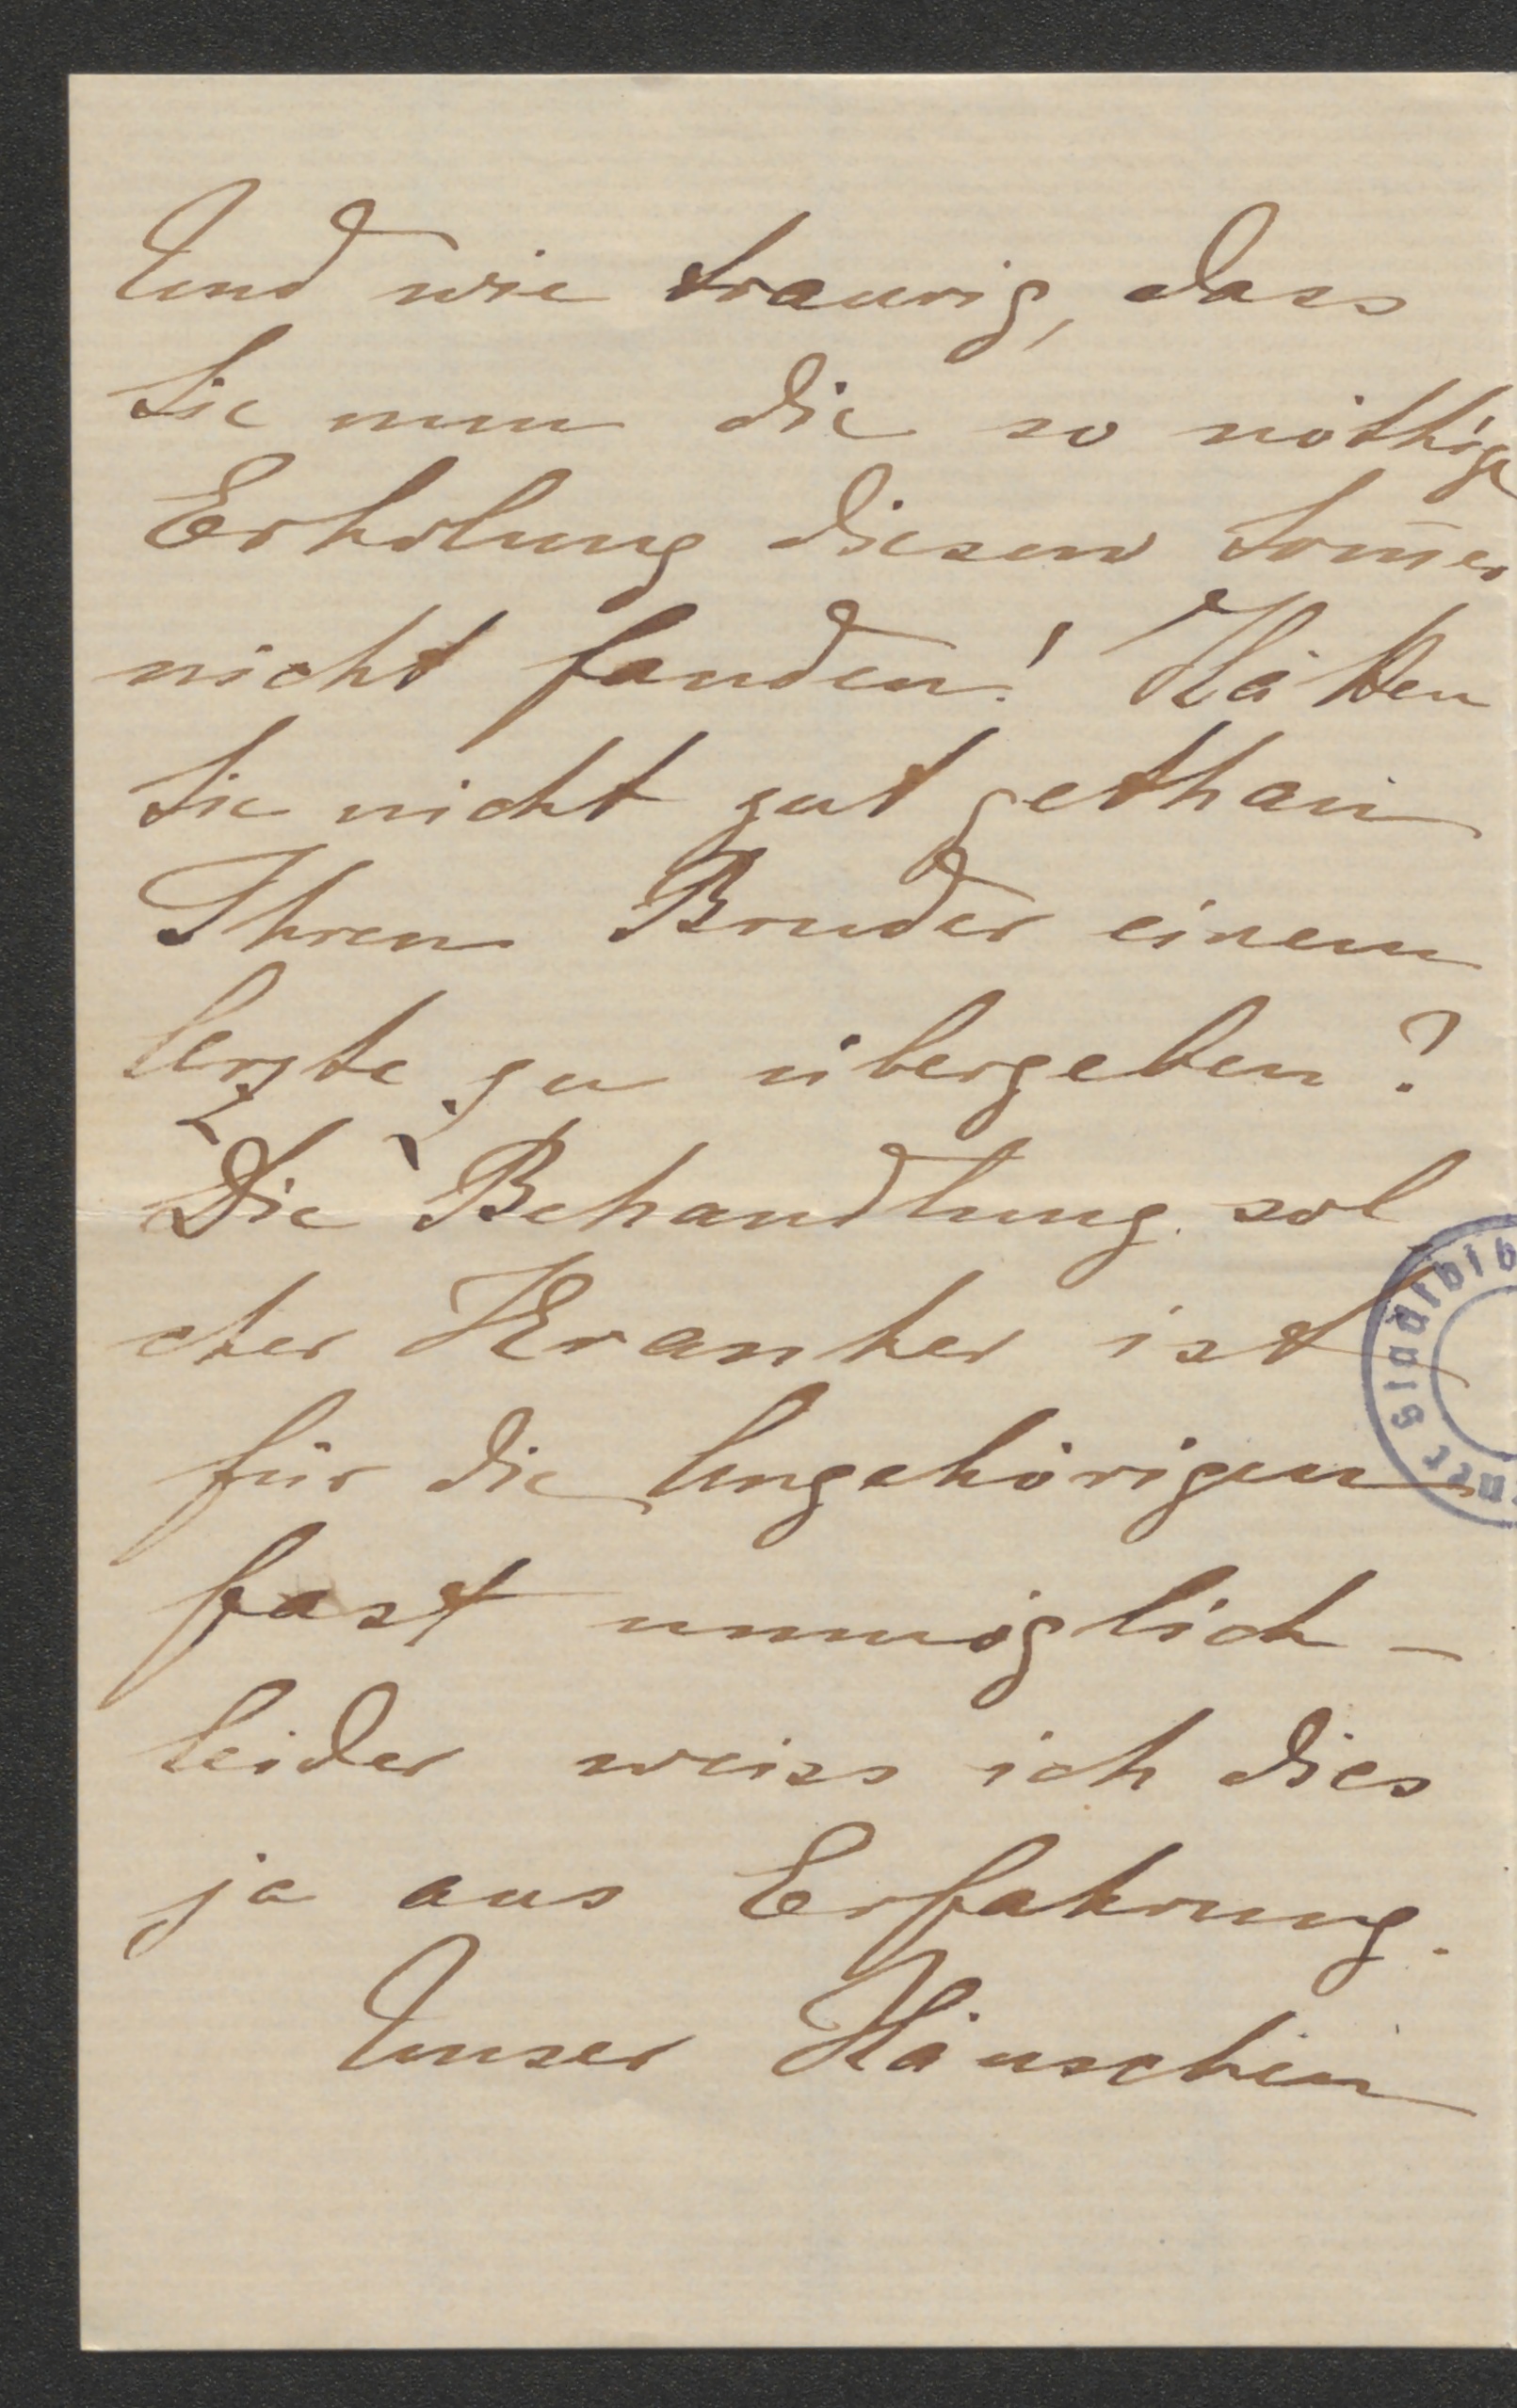 Und wie traurig, dass
Sie nun die so nöthige
Erholung diesen Som̄er
nicht fanden! Hätten
Sie nicht gut gethan
Ihren Bruder einem
Arzte zu übergeben?
Die Behandlung sol
cher Kranker ist
für die Angehörigen
fast unmöglich –
leider weiss ich dies
ja aus Erfahrung.
Unser Häuschen